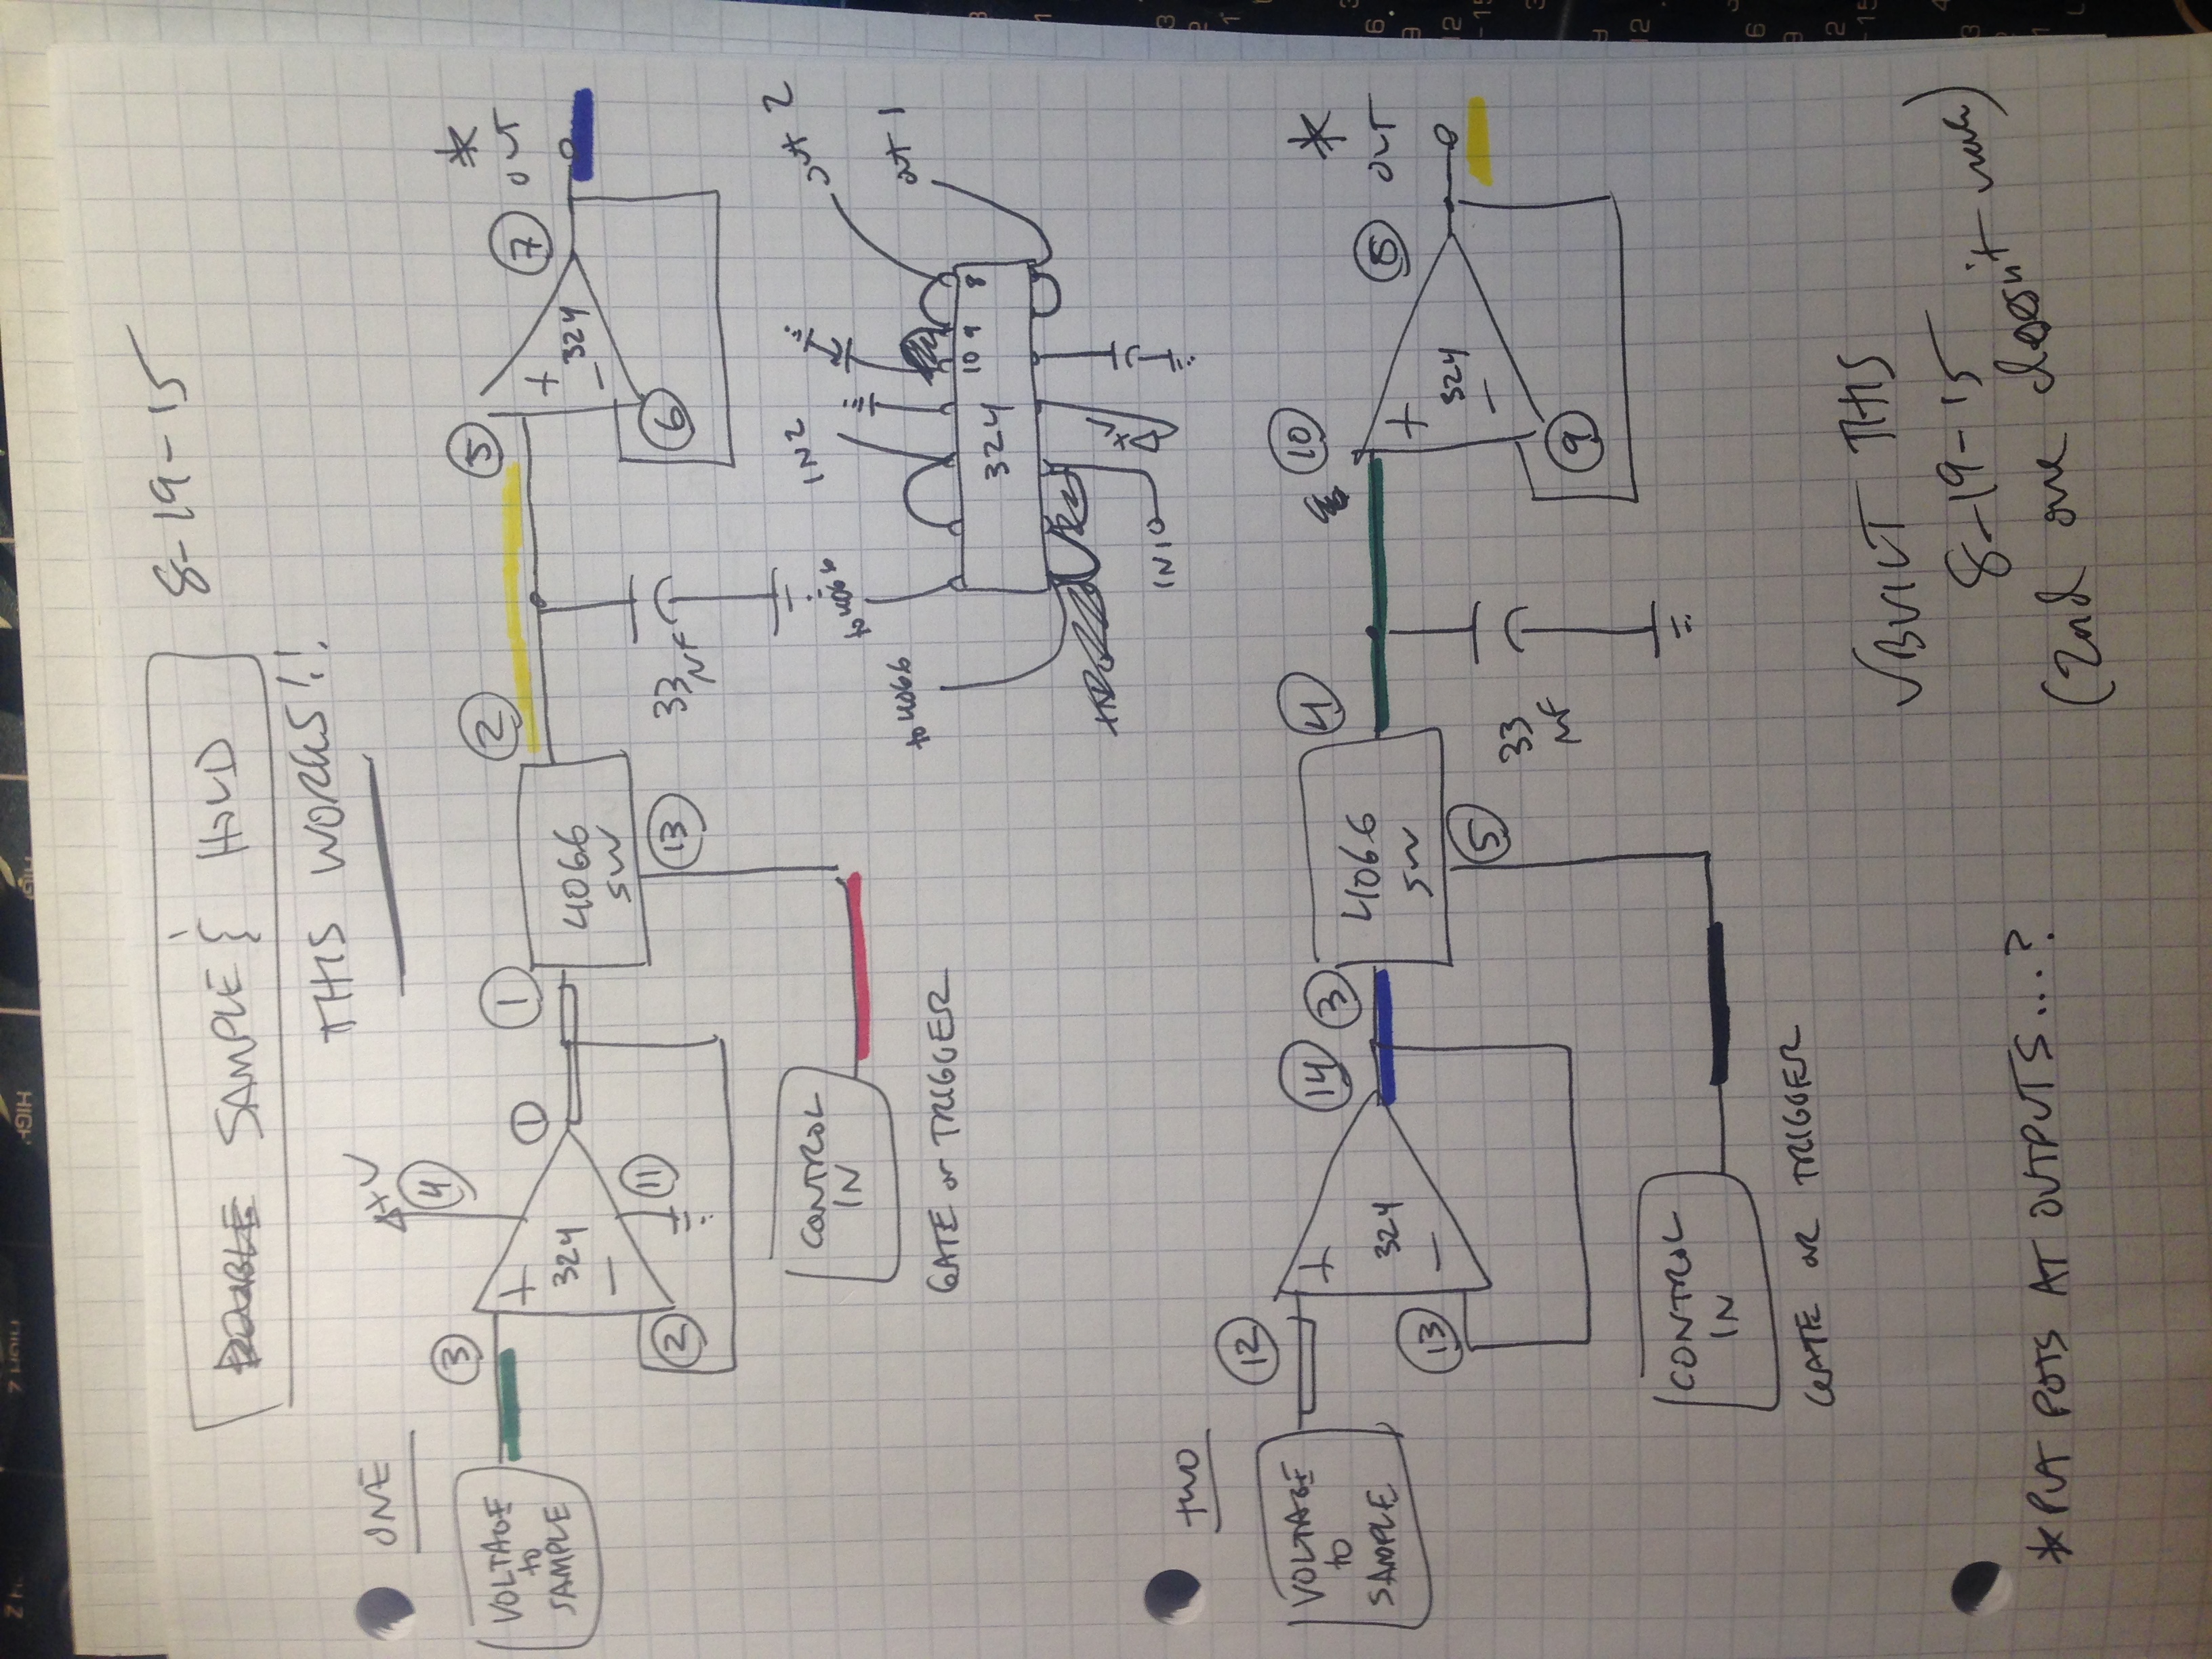 HIGH Z
HIGH
HIGH
DOUBLE SAMPLE & HOLD
8-19-15
THIS WORKS!!
ONE
+V
VOLTAGE
to
SAMPLE
3
4
+
324
-
2
11
1
1
4066
SW
2
13
33
NF
5
+
324
-
6
7
*
OUT
CONTROL
IN
GATE or TRIGGER
to 4066
to 4066
IN2
out 2
out 1
324
10 9 8
IN1
+V
TWO
VOLTAGE
to
SAMPLE
12
+
324
-
13
14
3
4066
SW
4
5
33
NF
10
+
324
-
9
8
*
OUT
CONTROL
IN
GATE OR TRIGGER
√BUILT THIS
8-19-15
(2nd one doesn't work)
*PUT POTS AT OUTPUTS...?